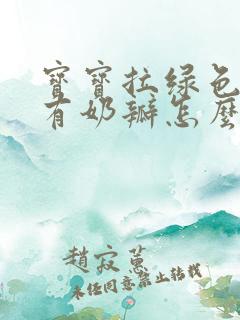 寶寶拉綠色
有奶瓣怎麼
趙寂蕙
未經同意禁止轉載